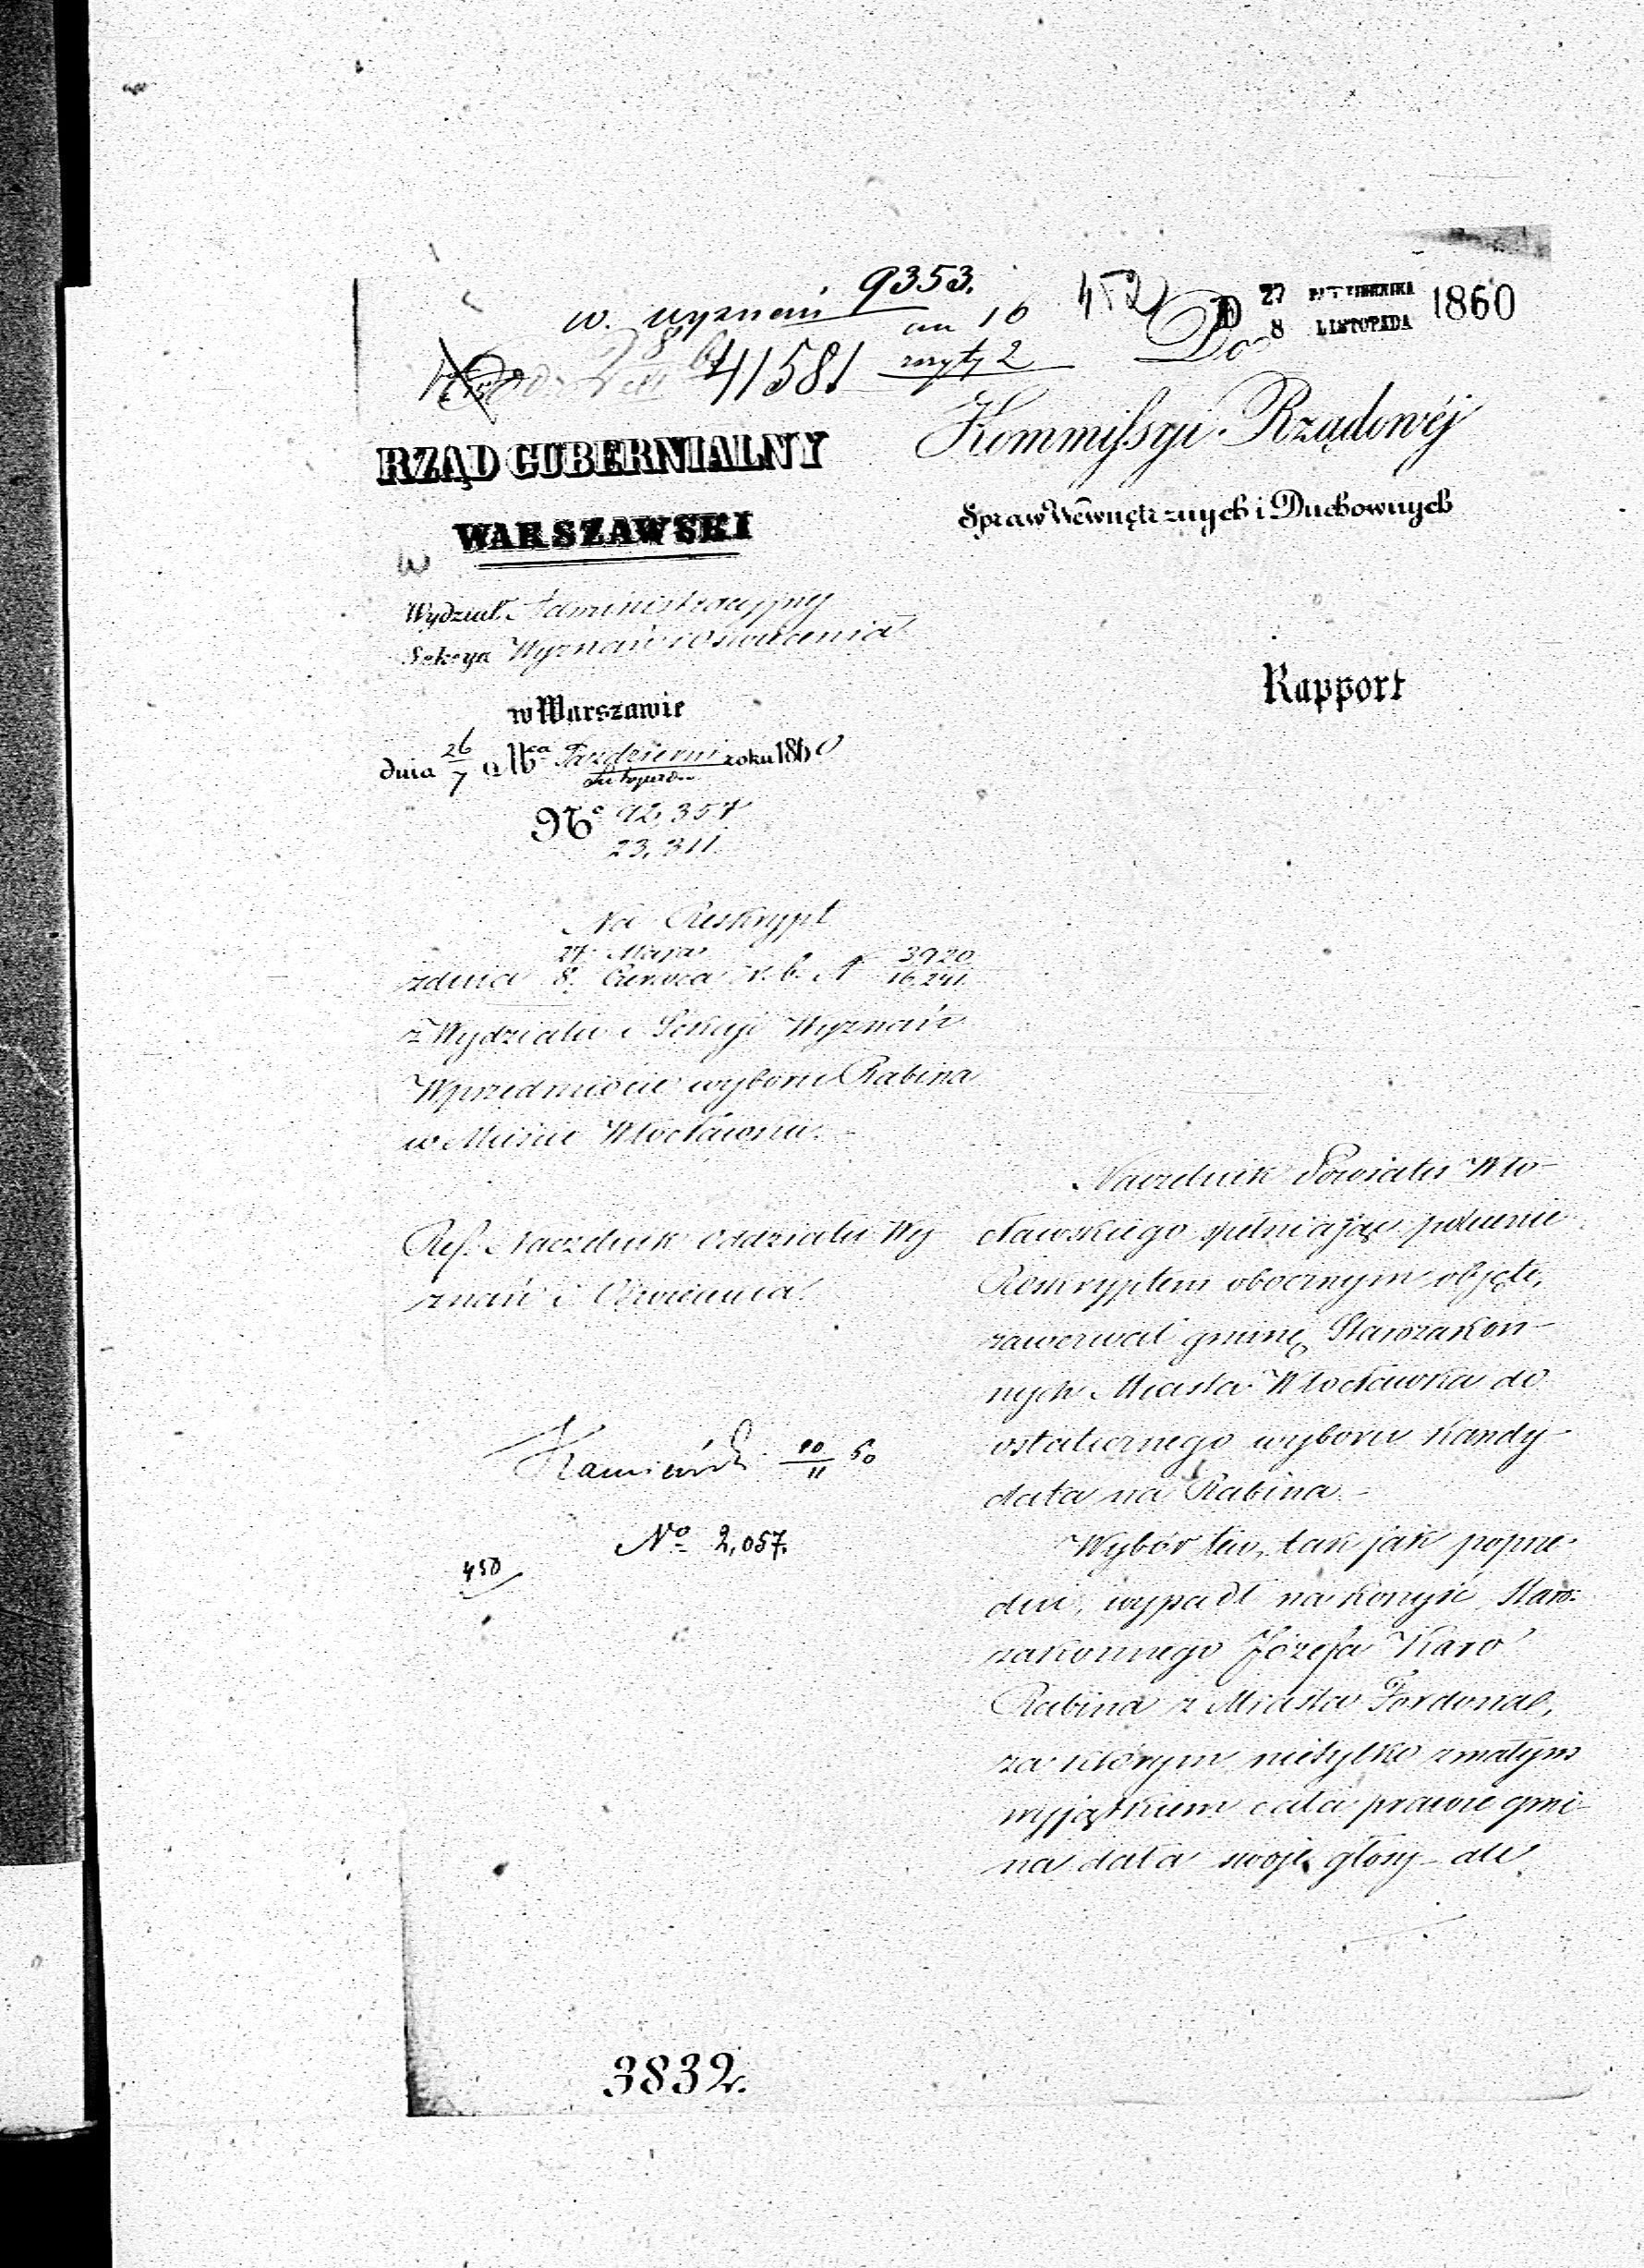 9353.
w. wyznań
an 16
41581 zszyty 2
452
Do
27 PAŹDZIERNIKA
8 LISTOPADA 1860
Kommissyi Rządowéj
Spraw Wewnętrznych i Duchownych
Rapport
RZĄD GUBERNIALNY
WARSZAWSKI
Wydział Administracyjny
Sekcya Wyznań i Oświecenia
w Warszawie
dnia 26/7 Mca Październi/Listopada roku 1860
No 92,357
23,311
Na Reskrypt
27 Maja 3920
z dnia 8 Czerwca r. b. N 16,241
z Wydziału i Sekcyi Wyznań
W przedmiocie wyboru Rabina
w Mieście Włocławku.
Ref. Naczelnik Oddziału Wy
znań i Oświecenia
Kamiński 10/11 60
No 2,057.
450
Naczelnik Powiatu Wło-
cławskiego spełniając polecenie
Reskryptem obocznym objęte,
zawezwał gminę Starozakon-
nych Miasta Włocławka do
ostatecznego wyboru kandy-
data na Rabina.-
Wybór ten, tak jak poprze-
dni, wypadł na korzyść Staro-
zakonnego Józefa Karo
Rabina z Miasta Fordonia,
za którym nietylko z małym
wyjątkiem cała prawie gmi-
na dała swoje głosy - ale
3832.